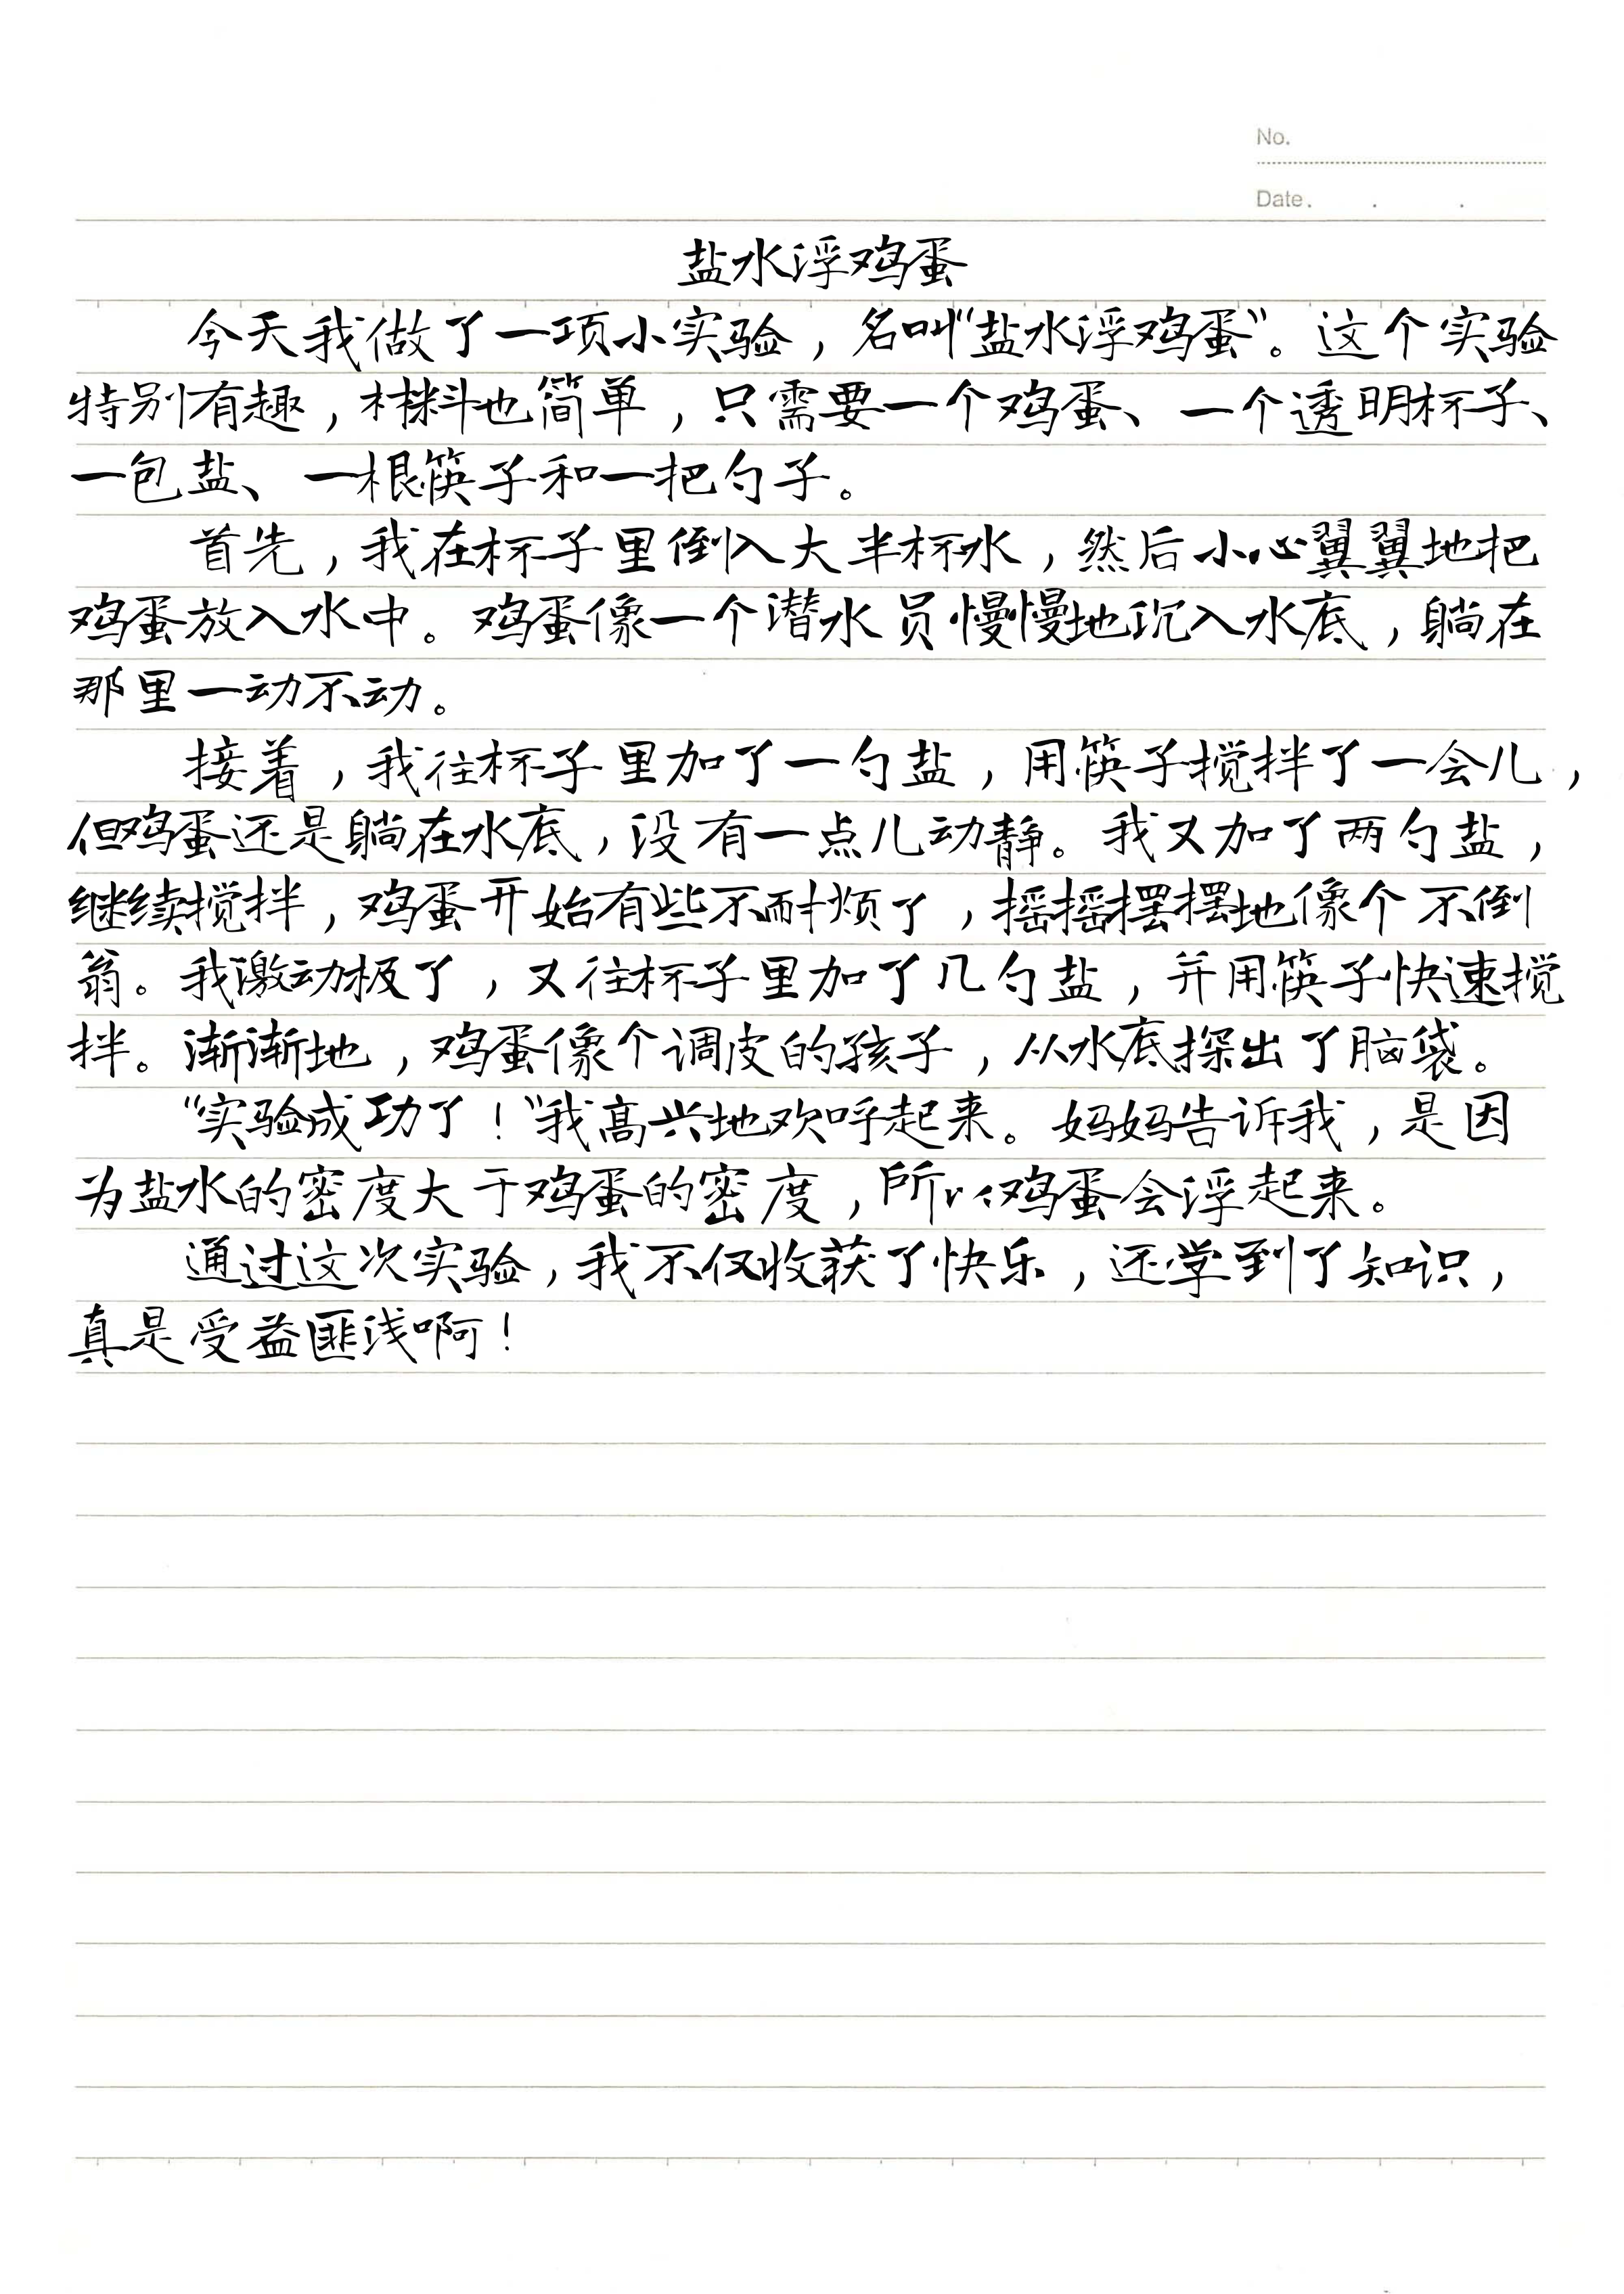 No.
Date. . .
盐水浮鸡蛋
今天我做了一项小实验，名叫“盐水浮鸡蛋”。这个实验
特别有趣，材料也简单，只需要一个鸡蛋、一个透明杯子、
一包盐、一根筷子和一把勺子。
首先，我在杯子里倒入大半杯水，然后小心翼翼地把
鸡蛋放入水中。鸡蛋像一个潜水员慢慢地沉入水底，躺在
那里一动不动。
接着，我往杯子里加了一勺盐，用筷子搅拌了一会儿，
但鸡蛋还是躺在水底，没有一点儿动静。我又加了两勺盐，
继续搅拌，鸡蛋开始有些不耐烦了，摇摇摆摆地像个不倒
翁。我激动极了，又往杯子里加了几勺盐，并用筷子快速搅
拌。渐渐地，鸡蛋像个调皮的孩子，从水底探出了脑袋。
“实验成功了！”我高兴地欢呼起来。妈妈告诉我，是因
为盐水的密度大于鸡蛋的密度，所以鸡蛋会浮起来。
通过这次实验，我不仅收获了快乐，还学到了知识，
真是受益匪浅啊！